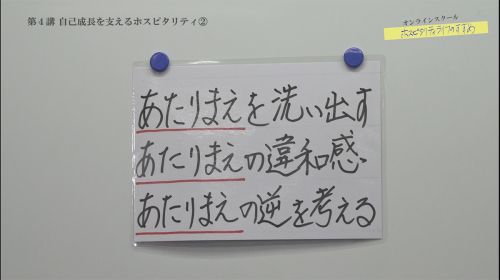 第4講 自己成長を支えるホスピタリティ②
オンラインスクール
ホスピタリティライフのすすめ
あたりまえを洗い出す
あたりまえの違和感
あたりまえの逆を考える